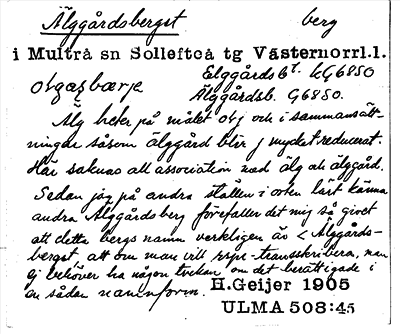 Älggårdsbergst berg
i Multrå sn Sollefteå tg Västernorrl.l.
Elggårdsbt. kG6850
Älggårdsb. G6850.
Älg heter på målet olj och i sammansätt-
ningar såsom älggård blir j mycket reducerat.
Här saknas all association med älg och älggård.
Sedan jag på andra ställen i orten lärt känna
andra Älggårdsberg förefaller det mig så givet
att detta bergs namn verkligen är < Älggårds-
bergst, att om man vill rspr-transskribera, man
ej behöver ha någon tvekan om det berättigade i
en sådan namnform. H.Geijer 1905
ULMA 508:45